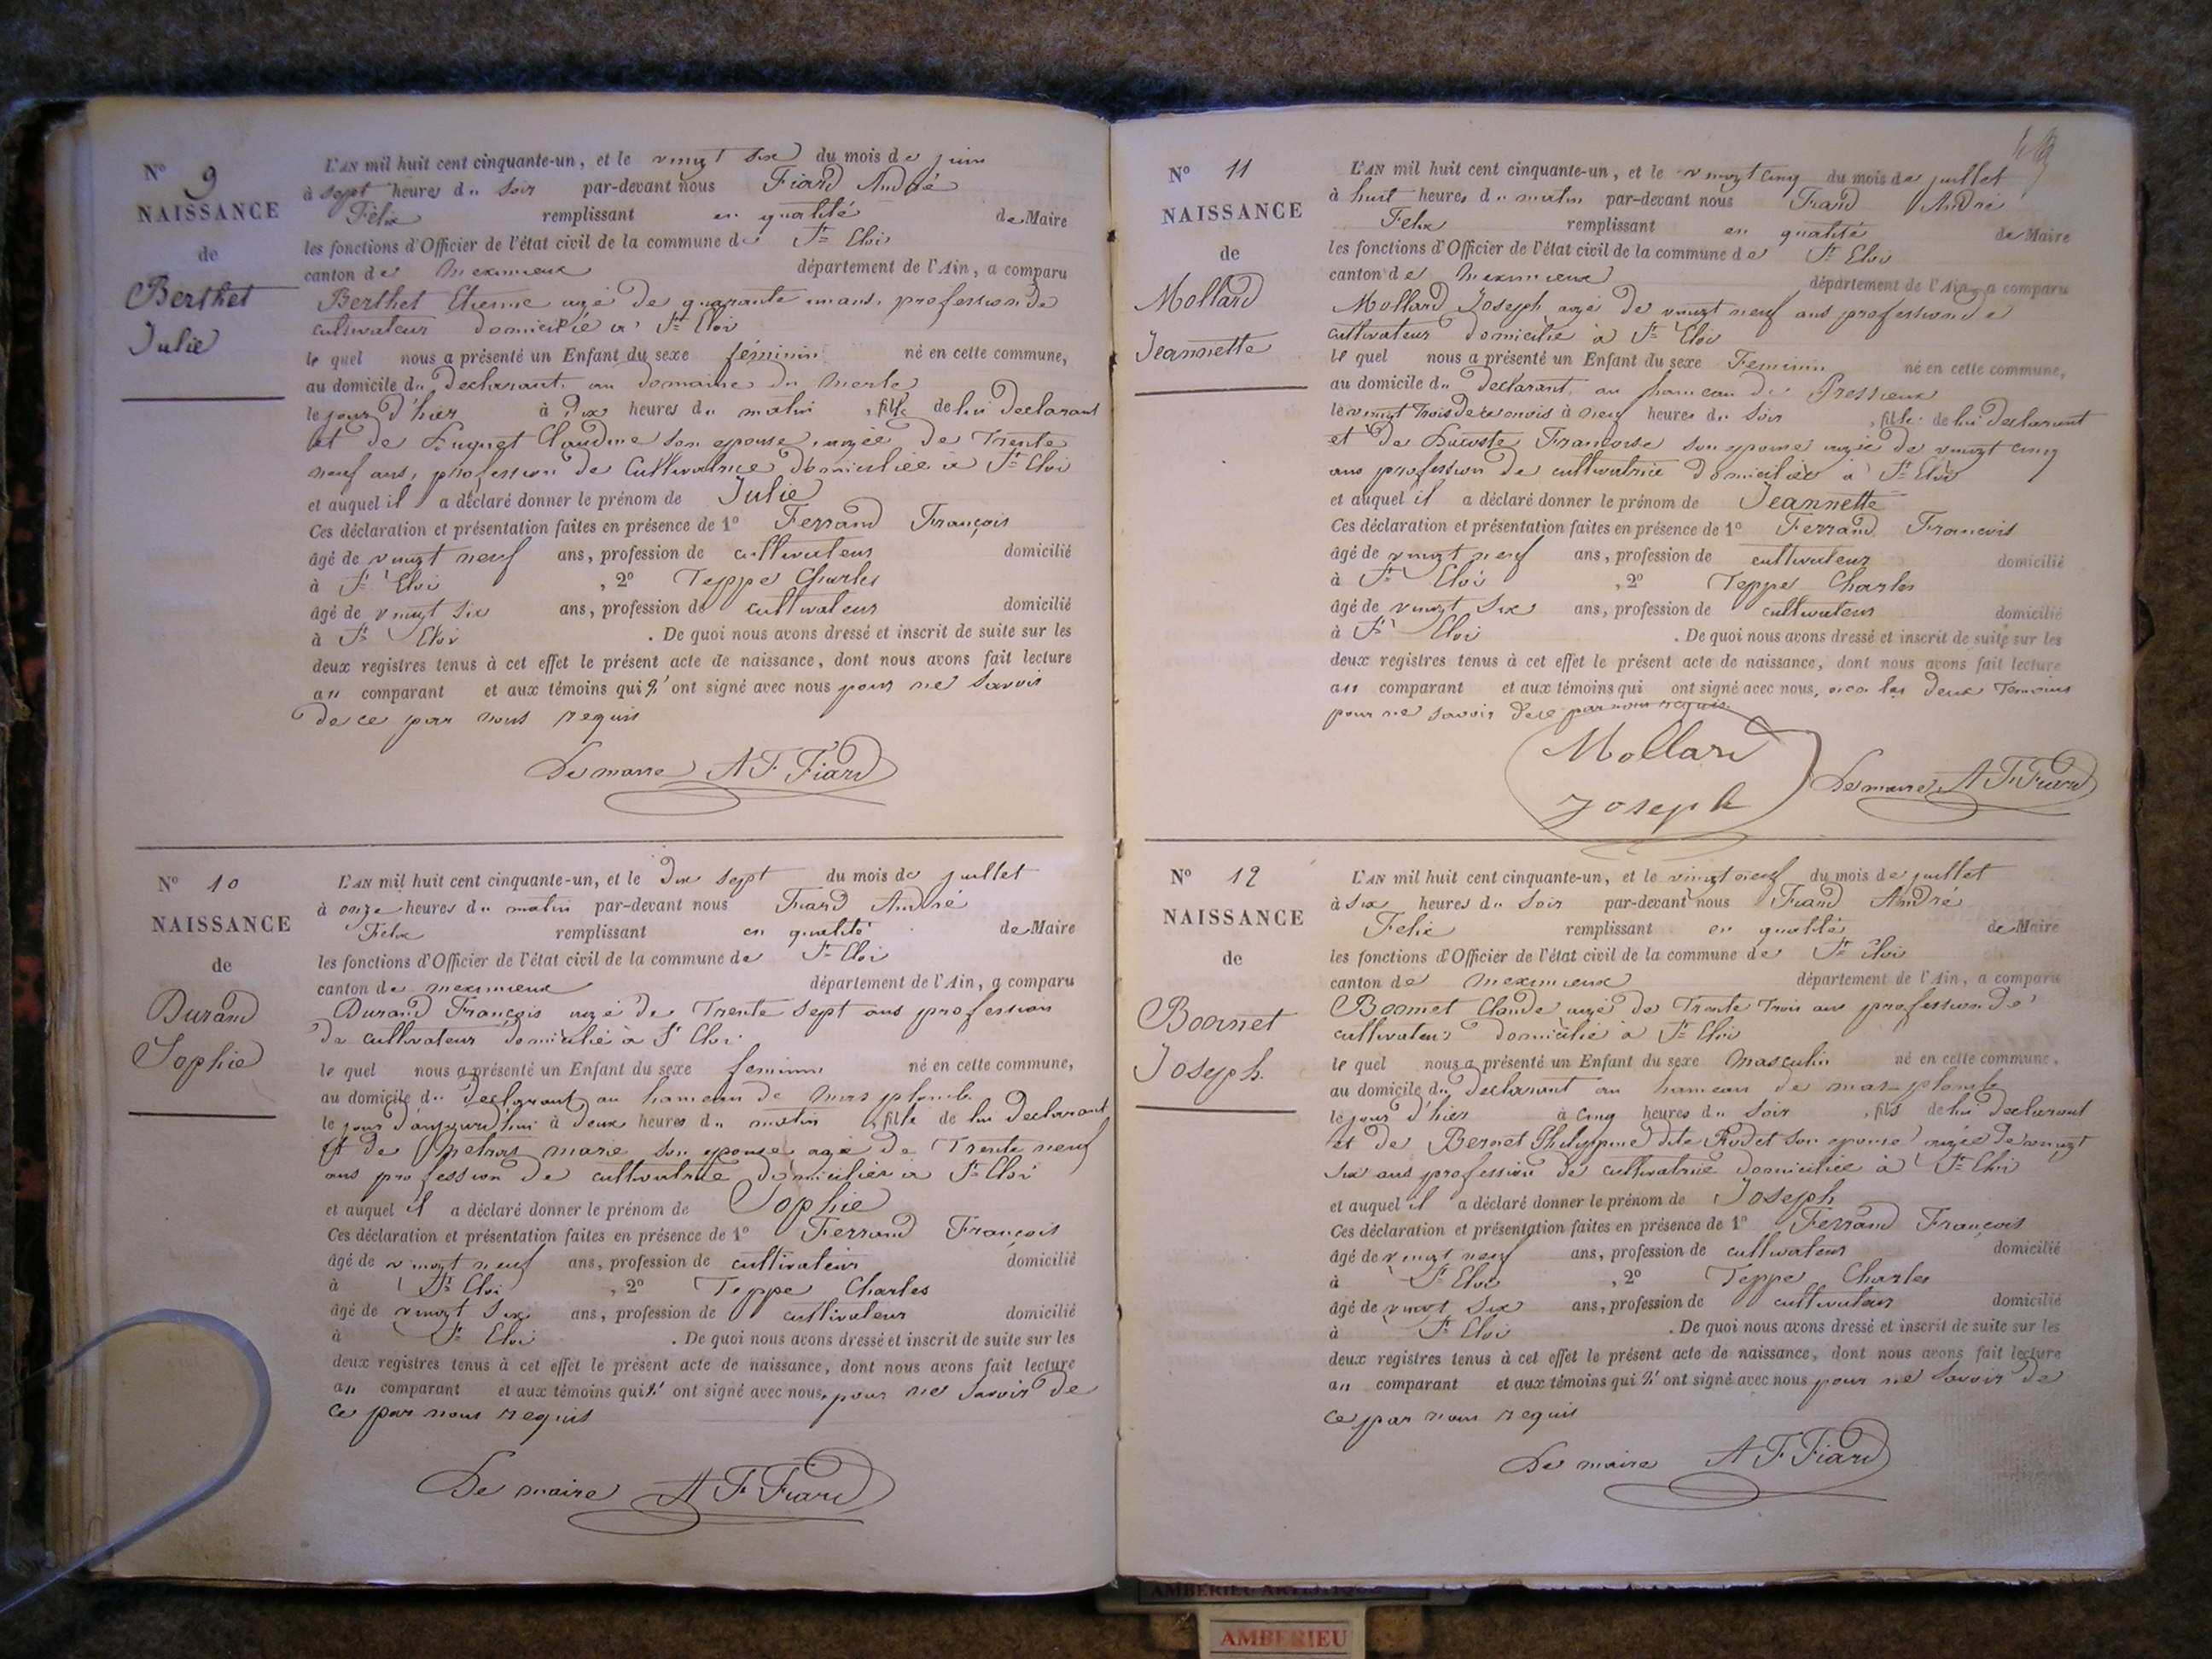 N° 9
NAISSANCE
de
Berthet
Julie
L'AN mil huit cent cinquante-un, et le vingt six du mois de juin
à sept heures du soir par-devant nous Fiard André
Félix remplissant en qualité de Maire
les fonctions d'Officier de l'état civil de la commune de St Eloi
canton de Meximieux département de l'Ain, a comparu
Berthet Etienne agé de quarante un ans, profession de
cultivateur domicilié à St Eloi
le quel nous a présenté un Enfant du sexe féminin né en cette commune,
au domicile du declarant au domaine du Merle
le jour d'hier à dix heures du matin , fille de lui declarant
et de Claudine son epouse, agée de Trente
neuf ans, profession de Cultivatrice domiciliée à St Eloi
et auquel il a déclaré donner le prénom de Julie
Ces déclaration et présentation faites en présence de 1° Ferrand François
âgé de vingt neuf ans, profession de cultivateur domicilié
à St Eloi , 2° Teppe Charles
âgé de vingt six ans, profession de cultivateur domicilié
à St Eloi . De quoi nous avons dressé et inscrit de suite sur les
deux registres tenus à cet effet le présent acte de naissance, dont nous avons fait lecture
au comparant et aux témoins qui n'ont signé avec nous pour ne savoir
de ce par nous requis
Le maire A F Fiard
N° 10
NAISSANCE
de
Durand
Sophie
L'AN mil huit cent cinquante-un, et le dix sept du mois de juillet
à onze heures du matin par-devant nous Fiard André
Felix remplissant en qualité de Maire
les fonctions d'Officier de l'état civil de la commune de St Eloi
canton de meximieux département de l'Ain, a comparu
Durand François agé de Trente sept ans profession
de cultivateur domicilié à St Eloi
le quel nous a présenté un Enfant du sexe feminin né en cette commune,
au domicile du declarant au hameau de Mas plomb
le jour d'aujourd'hui à deux heures du matin , fille de lui declarant
et de marie son epouse agé de Trente neuf
ans profession de cultivatrice domiciliée à St Eloi
et auquel il a déclaré donner le prénom de Sophie
Ces déclaration et présentation faites en présence de 1° Ferrand François
âgé de vingt neuf ans, profession de cultivateur domicilié
à St Eloi , 2° Teppe Charles
âgé de vingt six ans, profession de cultivateur domicilié
à St Eloi . De quoi nous avons dressé et inscrit de suite sur les
deux registres tenus à cet effet le présent acte de naissance, dont nous avons fait lecture
au comparant et aux témoins qui n'ont signé avec nous, pour ne savoir de
ce par nous requis
Le maire A F Fiard
N° 11
NAISSANCE
de
Mollard
Jeannette
L'AN mil huit cent cinquante-un, et le vingt cinq du mois de juillet
à huit heures du matin par-devant nous Fiard André
Felix remplissant en qualité de Maire
les fonctions d'Officier de l'état civil de la commune de St Eloi
canton de Meximieux département de l'Ain, a comparu
Mollard Joseph agé de vingt neuf ans profession de
cultivateur domicilié à St Eloi
le quel nous a présenté un Enfant du sexe Feminin né en cette commune,
au domicile du declarant, au hameau de Pressieux
le vingt Trois de ce mois à neuf heures du soir , fille de lui declarant
et de Lacoste Françoise son epouse agée de vingt cinq
ans profession de cultivatrice domiciliée à St Eloi
et auquel il a déclaré donner le prénom de Jeannette
Ces déclaration et présentation faites en présence de 1° Ferrand Francois
âgé de vingt neuf ans, profession de cultivateur domicilié
à St Eloi , 2° Teppe Charles
âgé de vingt six ans, profession de cultivateur domicilié
à St Eloi . De quoi nous avons dressé et inscrit de suite sur les
deux registres tenus à cet effet le présent acte de naissance, dont nous avons fait lecture
au comparant et aux témoins qui ont signé avec nous, non les deux Temoins
pour ne savoir de ce par nous requis
Mollard
Joseph
Le maire A F Fiard
N° 12
NAISSANCE
de
Boornet
Joseph.
L'AN mil huit cent cinquante-un, et le vingt neuf du mois de juillet
à six heures du soir par-devant nous Fiard André
Felix remplissant en qualité de Maire
les fonctions d'Officier de l'état civil de la commune de St Eloi
canton de Meximieux département de l'Ain, a comparu
Boornet Claude agé de Trente Trois ans profession de
cultivateur domicilié à St Eloi
le quel nous a présenté un Enfant du sexe Masculin né en cette commune,
au domicile du declarant au hameau de mas plomb
le jour d'hier à cinq heures du soir , fils de lui declarant
et de Bernet Philippine dite Rodet son epouse agée de vingt
six ans profession de cultivatrice domiciliée à St Eloi
et auquel il a déclaré donner le prénom de Joseph
Ces déclaration et présentation faites en présence de 1° Ferrand François
âgé de vingt neuf ans, profession de cultivateur domicilié
à St Eloi , 2° Teppe Charles
âgé de vingt six ans, profession de cultivateur domicilié
à St Eloi . De quoi nous avons dressé et inscrit de suite sur les
deux registres tenus à cet effet le présent acte de naissance, dont nous avons fait lecture
au comparant et aux témoins qui n'ont signé avec nous pour ne savoir de
ce par nous requis
Le maire A F Fiard
AMBERIEU